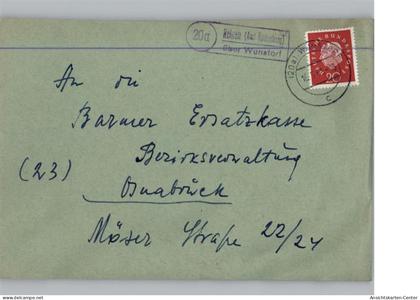 20a
über Wunstorf
(20a) W
DEUTSCHE BUNDESPOST
20
c
An die
Barmer Ersatzkasse
Bezirksverwaltung
(23)
Osnabrück
Möser Straße 22/24
Ansichtskarten-Center